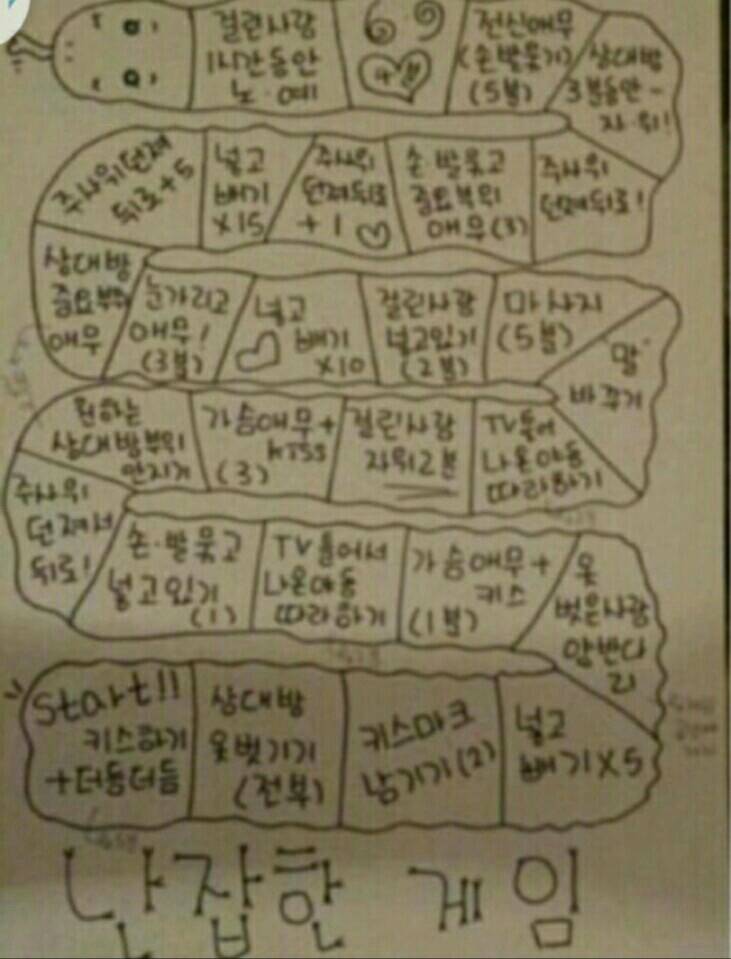 걸린사람
1시간동안
노·예
69
전신애무
(손발묶기)
(5분)
상대방
3분동안
자·위!
주사위던져
뒤로+5
넣고
빼기
X15
주사위
던져뒤로
+1
손·발묶고
중요부위
애무(3)
주사위
던져뒤로!
상대방
중요부위
애무
눈가리고
애무!
(3분)
넣고
빼기
X10
걸린사람
넣고있기
(2분)
마사지
(5분)
"말"
바꾸기
원하는
상대방부위
만지기
가슴애무+
kiss
(3)
걸린사람
자위2분
TV틀어
나온야동
따라하기
주사위
던져서
뒤로!
손·발묶고
넣고있기
(1)
TV틀어서
나온야동
따라하기
가슴애무+
키스
(1분)
옷
벗은사람
start!!
키스하기
+더듬더듬
상대방
옷벗기기
(전부)
키스마크
남기기(2)
넣고
빼기X5
난잡한 게임